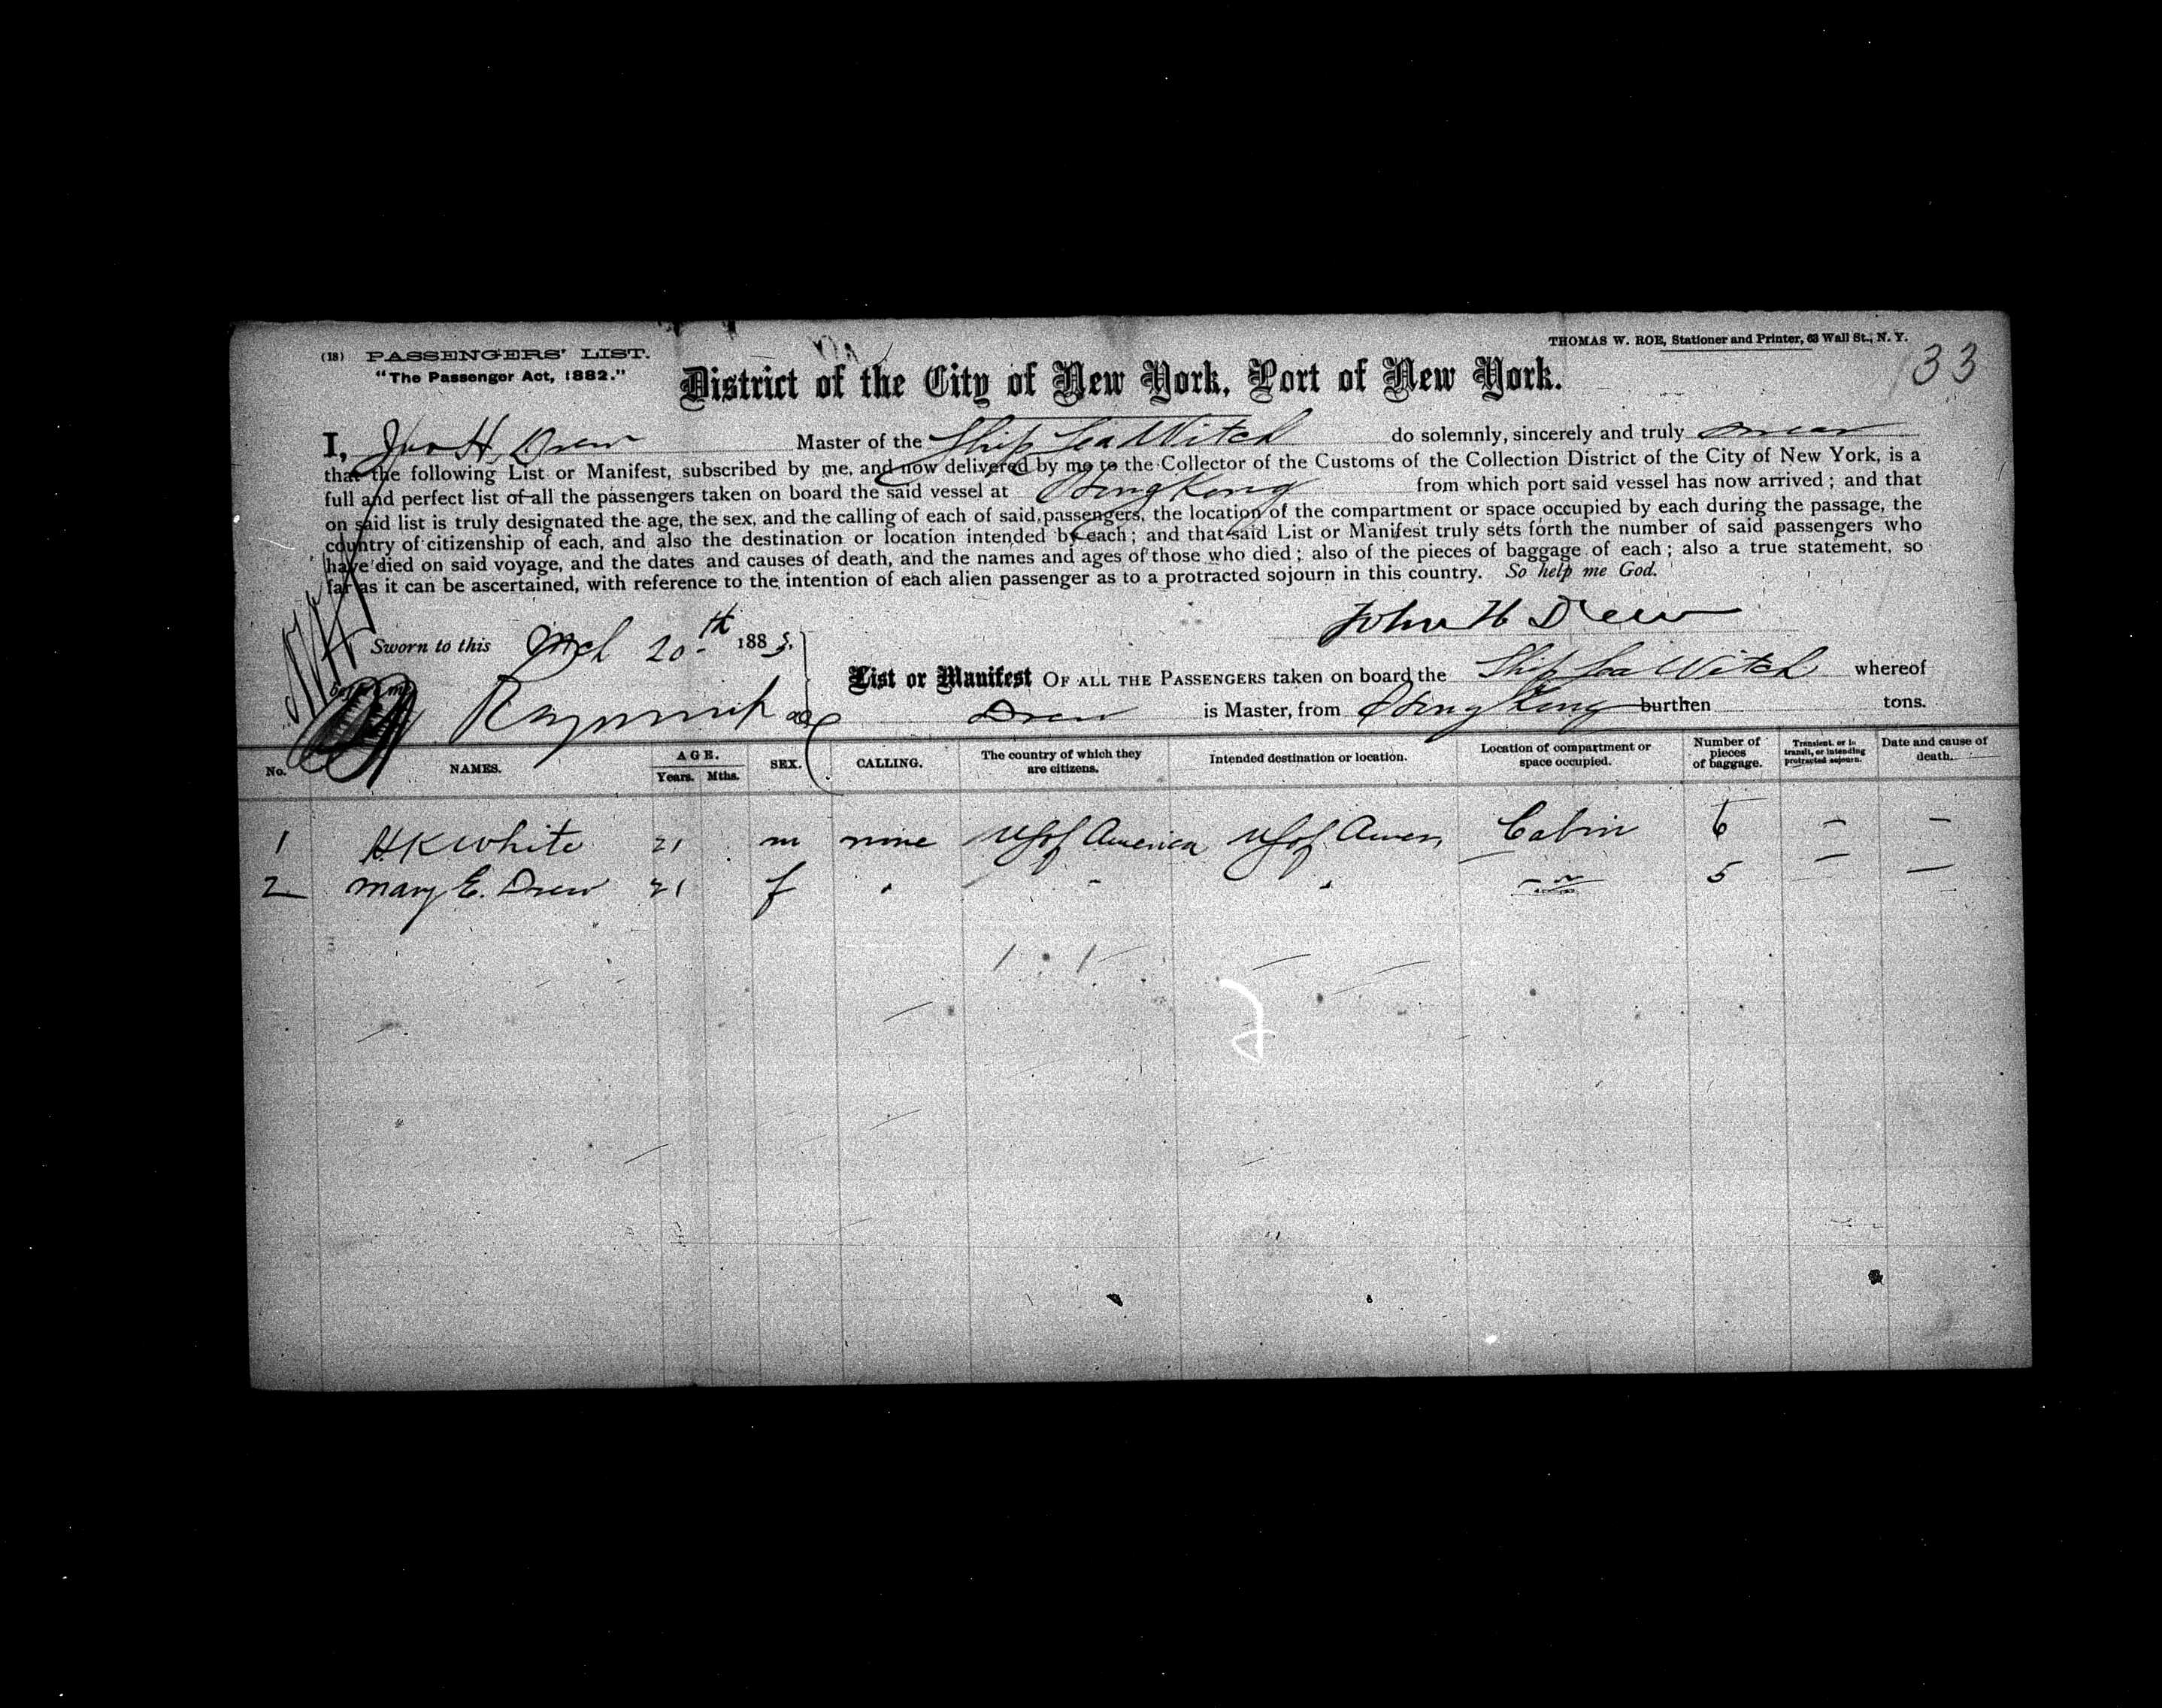 (18) PASSENGERS' LIST.
"The Passenger Act, 1882."
THOMAS W. ROE, Stationer and Printer, 63 Wall St., N. Y.
33
District of the City of New York, Port of New York.
I, Jno H. Drew Master of the Ship Sea Witch do solemnly, sincerely and truly swear
that the following List or Manifest, subscribed by me, and now delivered by me to the Collector of the Customs of the Collection District of the City of New York, is a
full and perfect list of all the passengers taken on board the said vessel at Hong Kong from which port said vessel has now arrived; and that
on said list is truly designated the age, the sex, and the calling of each of said passengers, the location of the compartment or space occupied by each during the passage, the
country of citizenship of each, and also the destination or location intended by each; and that said List or Manifest truly sets forth the number of said passengers who
have died on said voyage, and the dates and causes of death, and the names and ages of those who died; also of the pieces of baggage of each; also a true statement, so
far as it can be ascertained, with reference to the intention of each alien passenger as to a protracted sojourn in this country. So help me God.
John H Drew
Sworn to this Mch 20th 1883.
before me
List or Manifest OF ALL THE PASSENGERS taken on board the Ship Sea Witch whereof
Drew is Master, from Hong Kong burthen tons.
No. NAMES. AGE. Years. Mths. SEX. CALLING. The country of which they are citizens. Intended destination or location. Location of compartment or space occupied. Number of pieces of baggage. Transient, or in transit, or intending protracted sojourn. Date and cause of death.
1 H K White 21 m none U S of America U S of Amer Cabin 6 — —
2 Mary E. Drew 21 f " " " " 5 — —